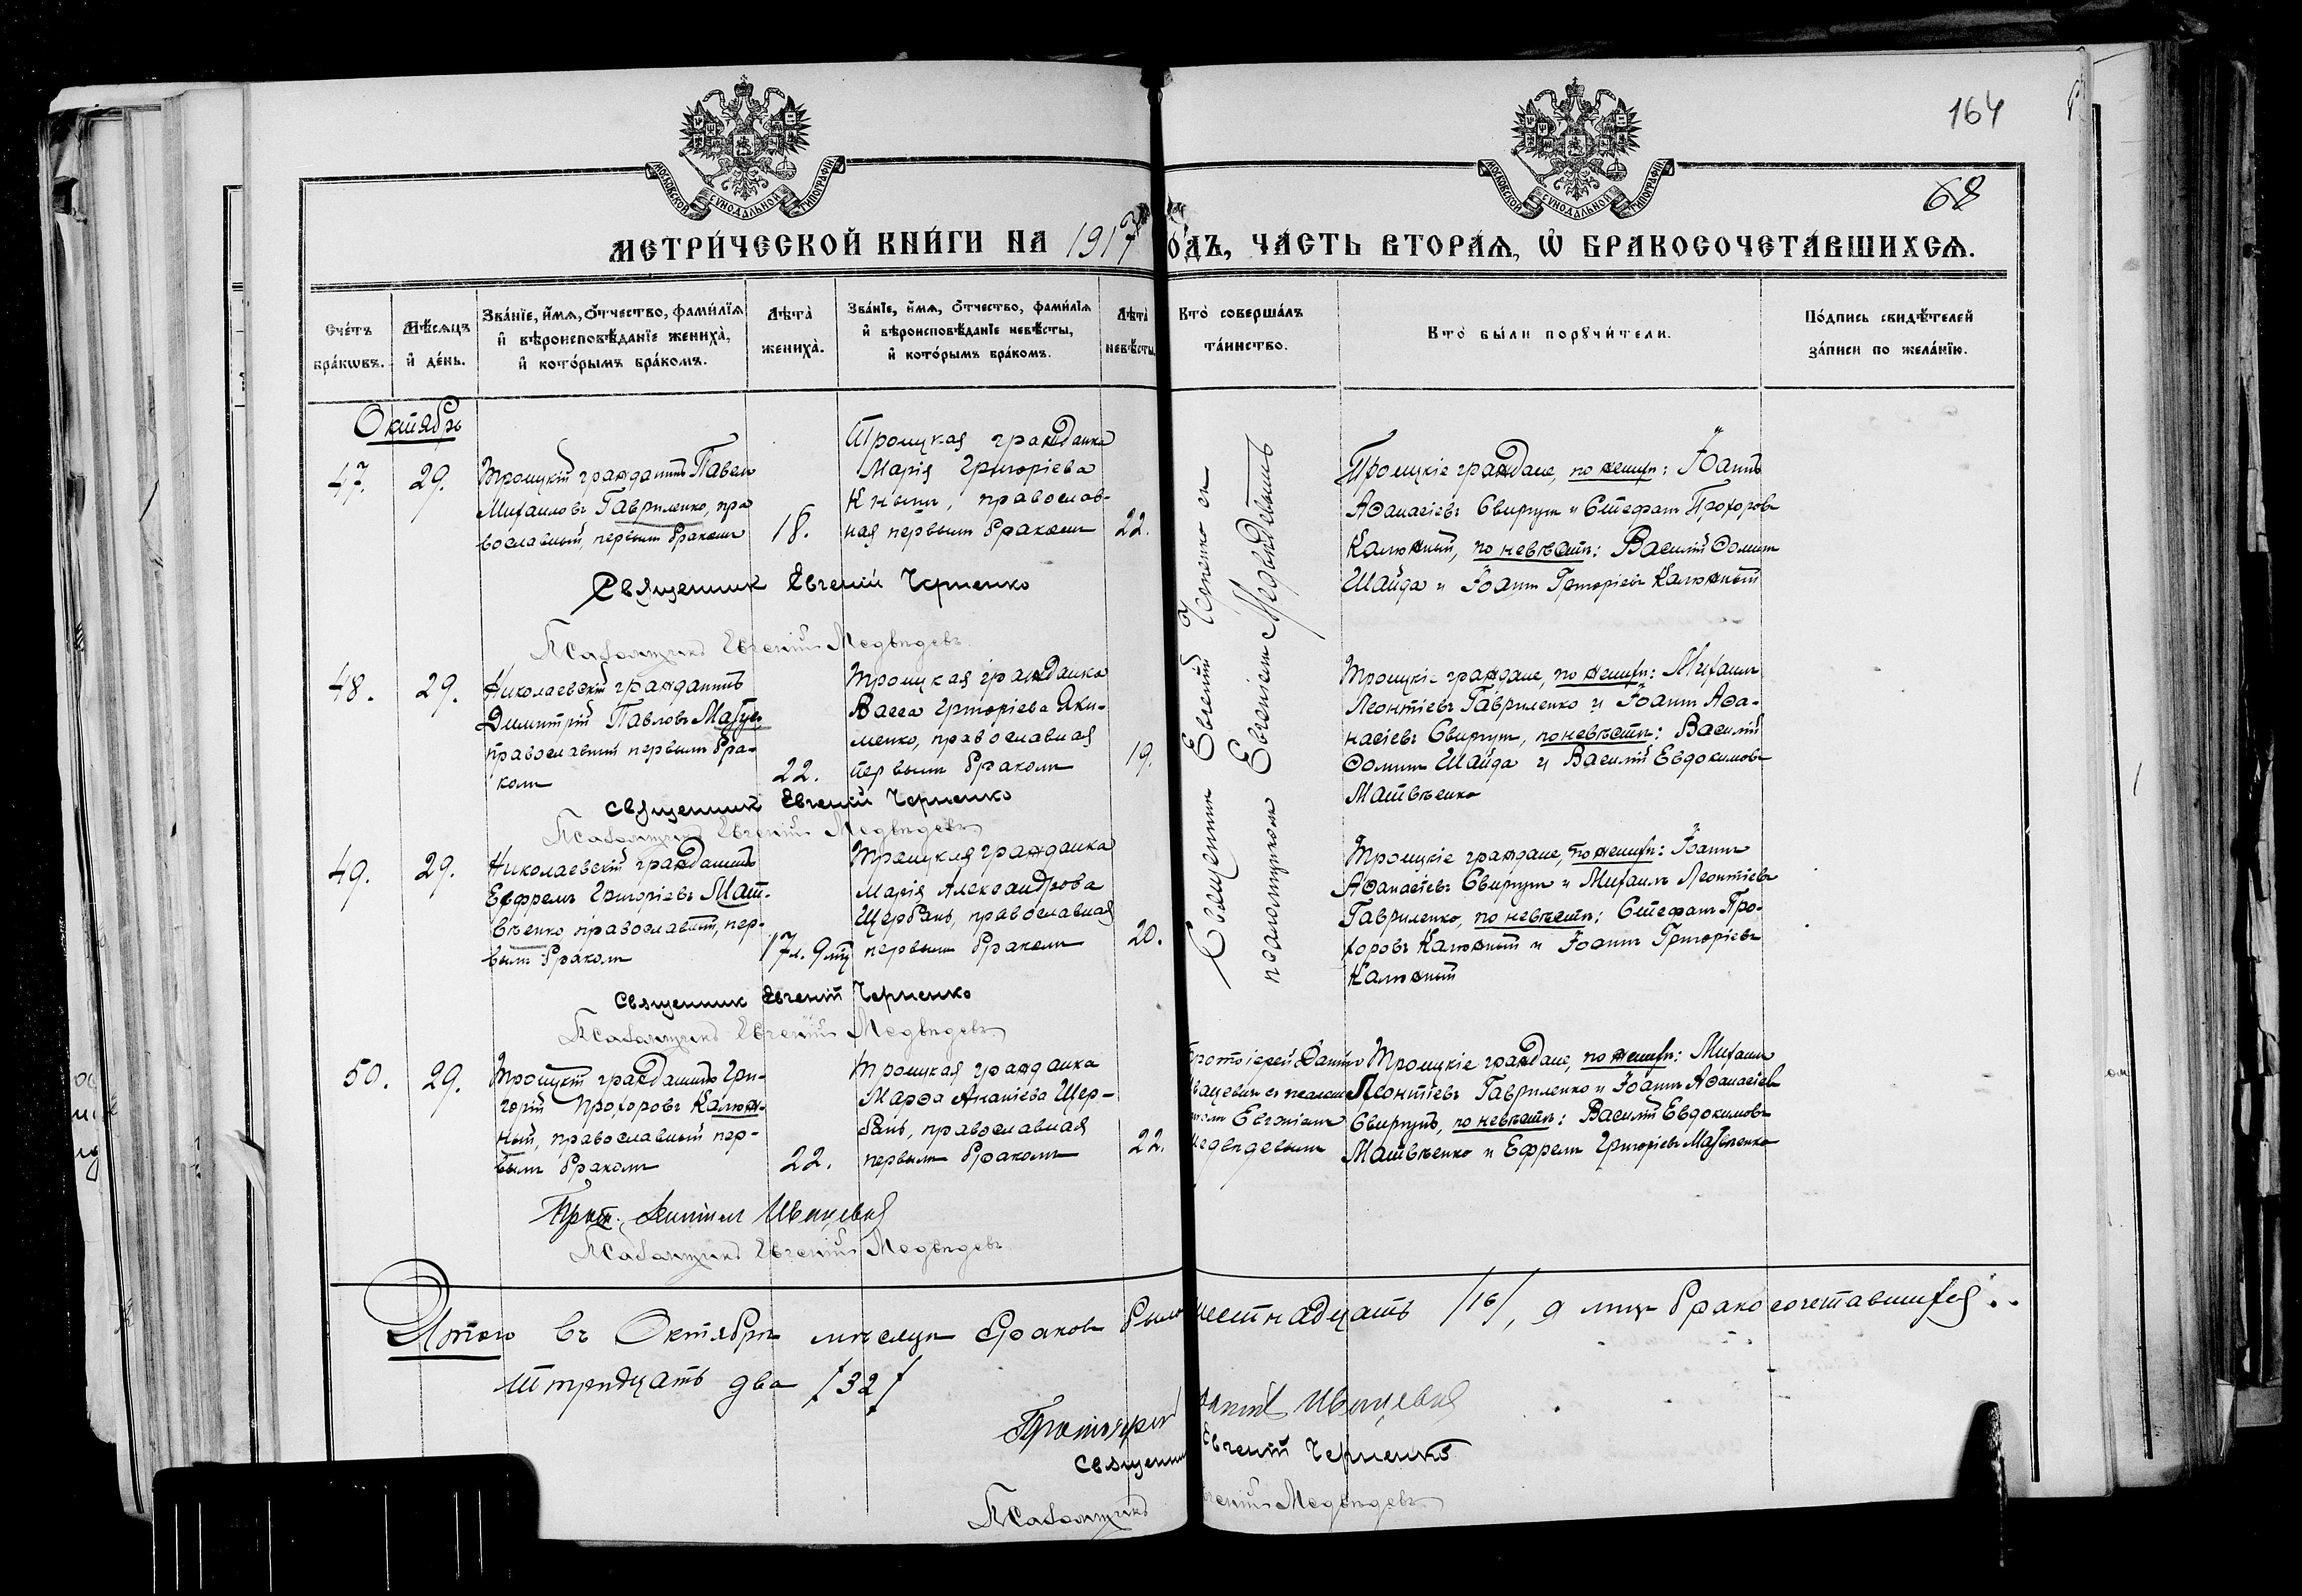 164
68
МОСКОВСКОЙ СѴНОДАЛЬНОЙ ТИПОГРАФІИ
МОСКОВСКОЙ СѴНОДАЛЬНОЙ ТИПОГРАФІИ
МЕТРИ́ЧЕСКОЙ КНИ́ГИ НА 1917 ГОДЪ, ЧА́СТЬ ВТОРА́Я, Ѡ БРАКОСОЧЕТА́ВШИХСЯ.
Сче́тъ бра́кѡвъ.
Мѣ́сяцъ и҆ де́нь.
Зва́нїе, и҆́мя, ѻ҆́тчество, фами́лїя
и҆ вѣроисповѣ́данїе жениха̀,
и҆ кото́рымъ бра́комъ.
Лѣта̀ жениха̀.
Зва́нїе, и҆́мя, ѻ҆́тчество, фами́лїя
и҆ вѣроисповѣ́данїе невѣ́сты,
и҆ кото́рымъ бра́комъ.
Лѣта̀ невѣ́сты.
Кто̀ соверша́лъ
та́инство.
Кто̀ бы́ли порꙋчи́тели.
По́дпись свидѣ́телей
за́писи по жела́нїю.
Октябрь
47.
29.
Троицкій гражданинъ Павелъ
Михаиловъ Гавриленко, пра
вославный, первымъ бракомъ
18.
Троицкая гражданка
Марія Григоріева
Кнышъ, православ-
ная первымъ бракомъ
22.
Священник Евгеній Черненко съ
псаломщикомъ Евгеніем Медвѣдевымъ
Троицкіе граждане, по жениху: Іоаннъ
Аѳанасіевъ Свиргун и Стефанъ Прохоровъ
Калюжный, по невѣстѣ: Василій Ѳомин
Шайда и Іоанн Григоріевъ Калюжный
Священник Евгеній Черненко
Псаломщикъ Евгеній Медвѣдевъ
48.
29.
Николаевскій гражданинъ
Димитрій Павловъ
православный первымъ бра-
комъ
22.
Троицкая гражданка
Васса Григоріева Яки-
менко, православная
первымъ бракомъ
19.
Троицкіе граждане, по жениху: Михаилъ
Леонтіевъ Гавриленко и Іоаннъ Аѳа-
насіевъ Свиргун, по невѣстѣ: Василій
Ѳоминъ Шайда и Василій Евдокимовъ
Матвѣенко
Священник Евгеній Черненко
Псаломщикъ Евгеній Медвѣдевъ
49.
29.
Николаевскій гражданинъ
Ефремъ Григоріевъ Мат-
вѣенко православный, пер-
вымъ бракомъ
17 л. 9 мц
Троицкая гражданка
Марія Александрова
Щербань, православная
первымъ бракомъ
20.
Троицкіе граждане, по жениху: Іоаннъ
Аѳанасіевъ Свиргун и Михаилъ Леонтіевъ
Гавриленко, по невѣстѣ: Стефанъ Про-
хоровъ Калюжный и Іоаннъ Григоріевъ
Калюжный
Священник Евгеній Черненко
Псаломщикъ Евгеній Медвѣдевъ
50.
29.
Троицкій гражданинъ Гри-
горій Прохоровъ Калюж-
ный, православный пер-
вымъ бракомъ
22.
Троицкая гражданка
Марѳа Ананіева Щер-
бань, православная
первымъ бракомъ
22.
Протоіерей Даніилъ
Евгеніемъ
Медвѣдевымъ
Троицкіе граждане, по жениху: Михаилъ
Леонтіевъ Гавриленко и Іоаннъ Аѳанасіевъ
Свиргунъ, по невѣстѣ: Василій Евдокимовъ
Матвѣенко и Ефремъ Григоріевъ Матвѣенко
Прот. Даніилъ
Псаломщикъ Евгеній Медвѣдевъ
Итого въ Октябрѣ мѣсяцѣ браковъ было шестнадцать /16/, а лицъ бракосочетавшихся
тридцать два /32/
Протоіерей Даніилъ
Священник Евгеній Черненко
Псаломщикъ Евгеній Медвѣдевъ